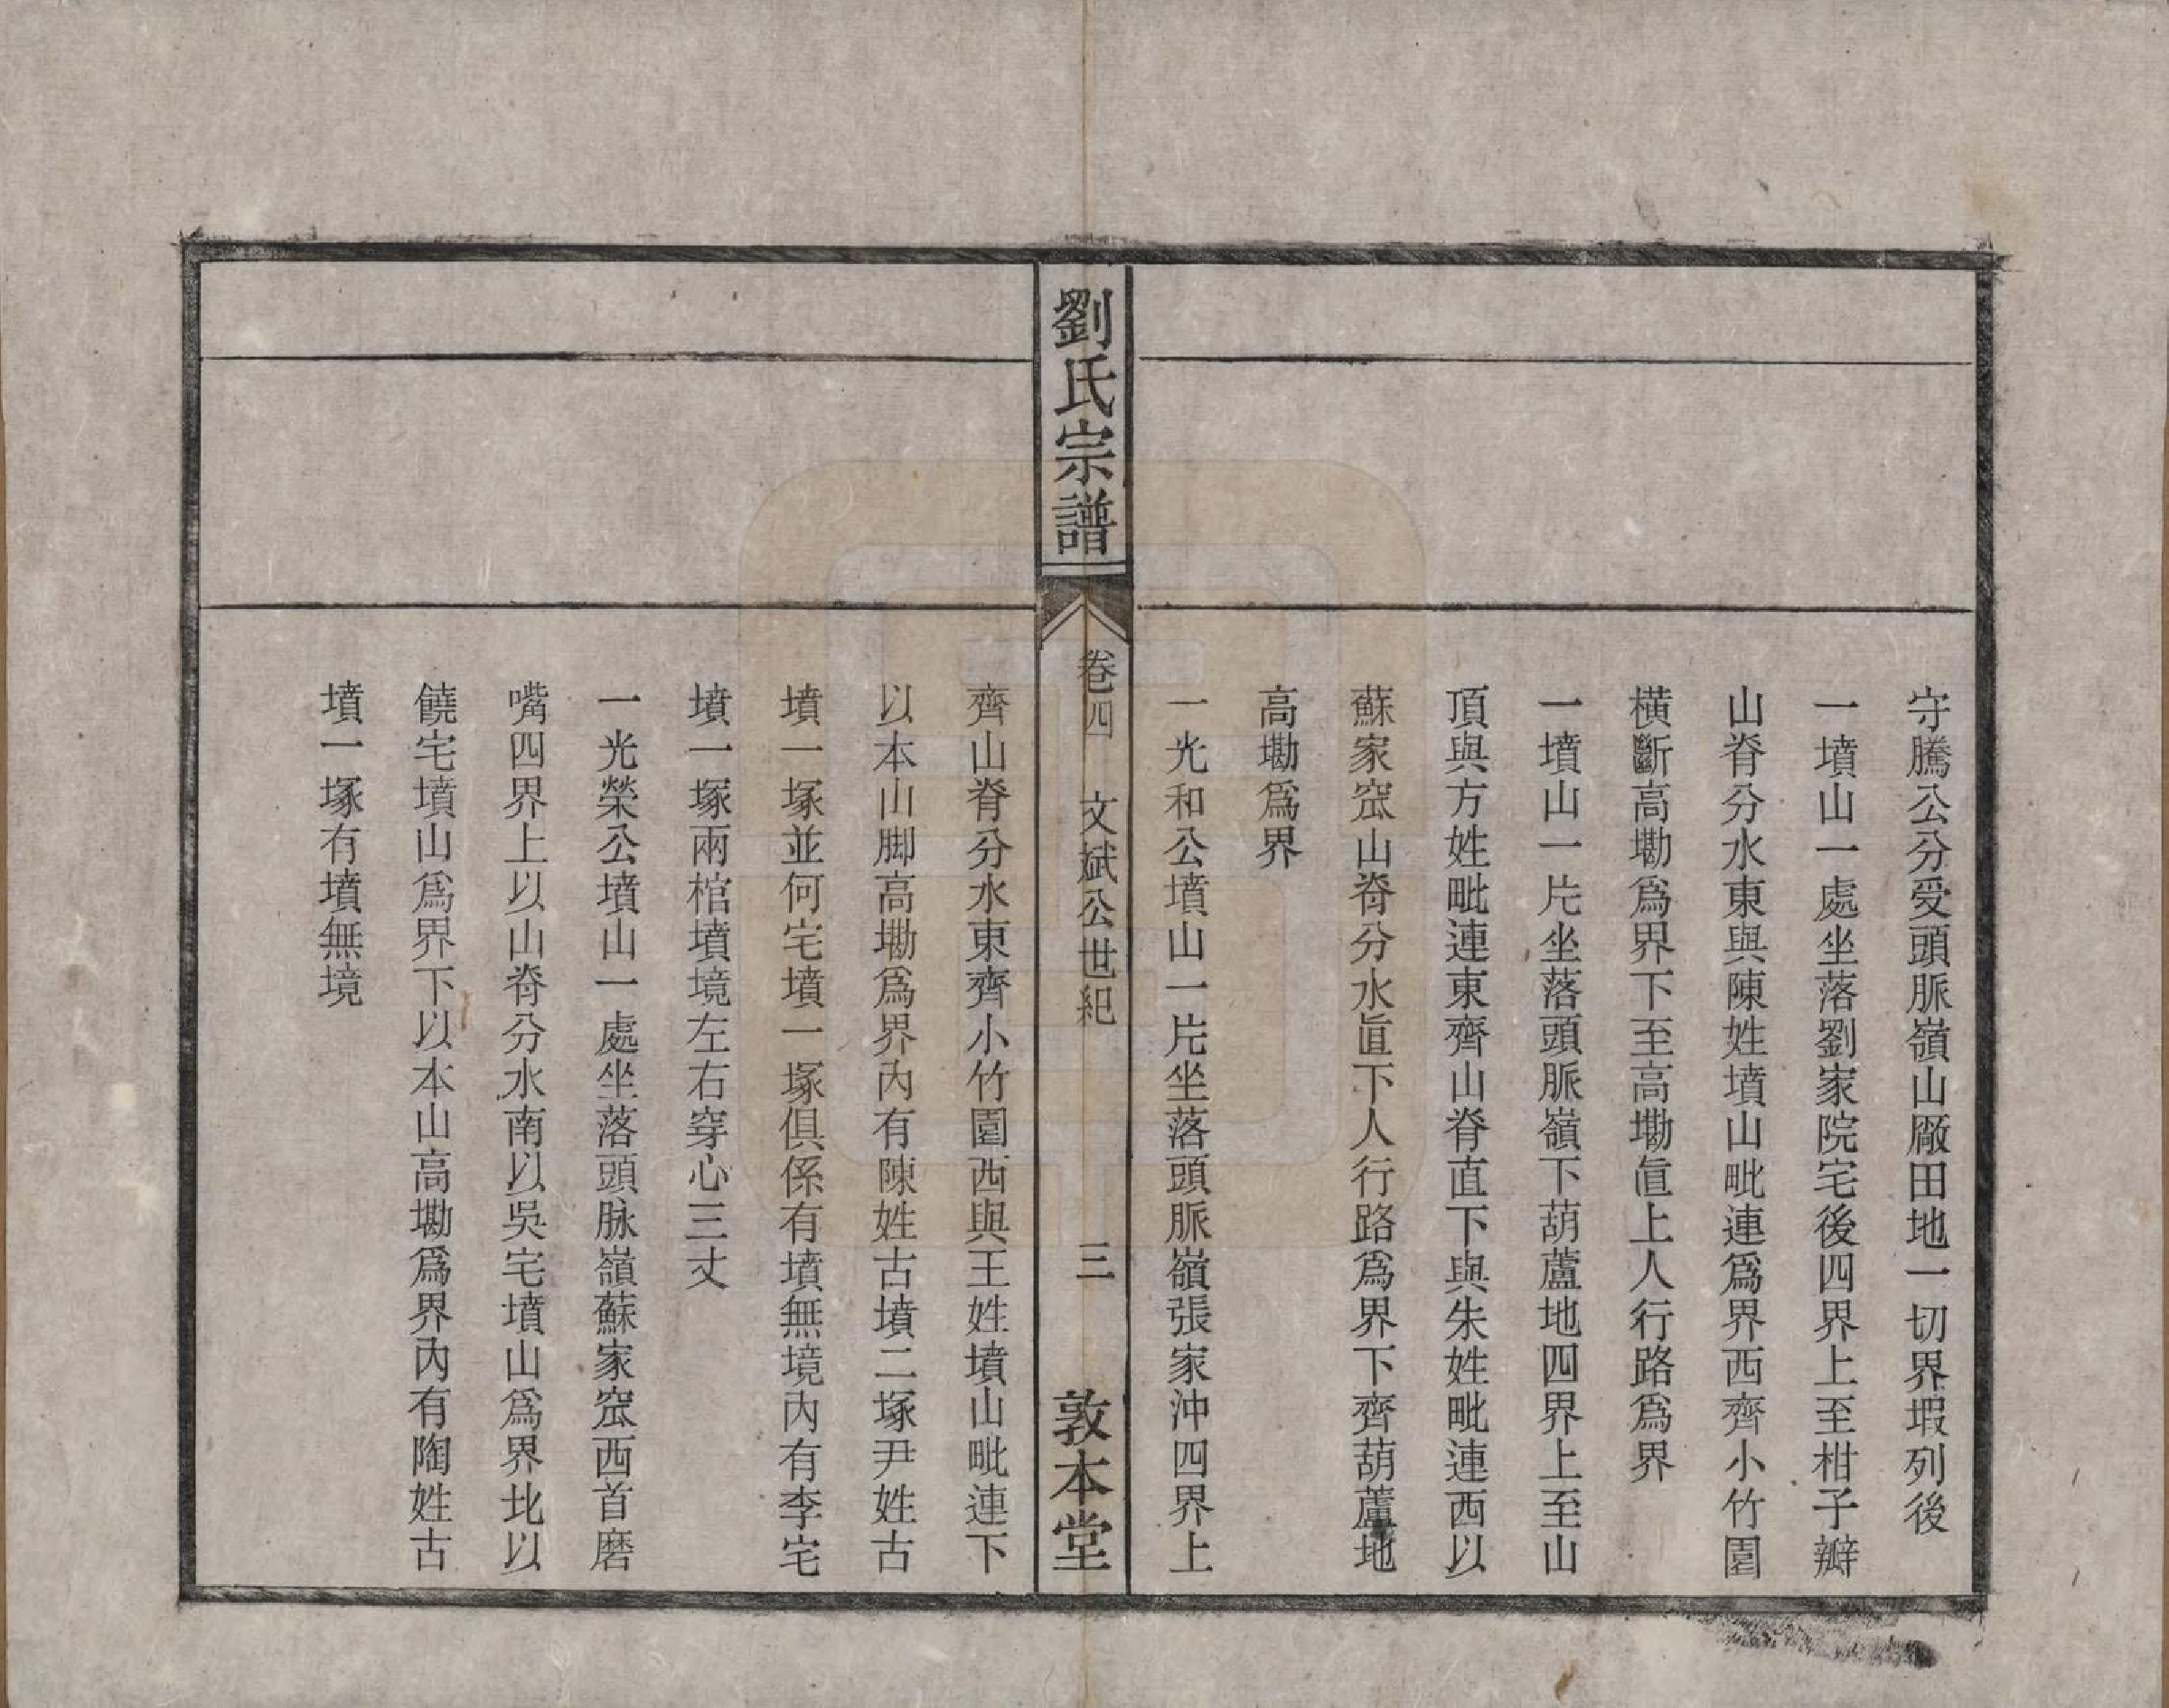 守騰公分受頭脈嶺山廠田地一切界塅列後
一墳山一處坐落劉家院宅後四界上至柑子瓣
山脊分水東與陳姓墳山毗連爲界西齊小竹園
橫斷高墈爲界下至高墈直上人行路爲界
一墳山一片坐落頭脈嶺下葫蘆地四界上至山
頂與方姓毗連東齊山脊直下與朱姓毗連西以
蘇家窊山脊分水直下人行路爲界下齊葫蘆地
高墈爲界
一光和公墳山一片坐落頭脈嶺張家沖四界上
劉氏宗譜
卷四 文斌公世紀 三
敦本堂
齊山脊分水東齊小竹園西與王姓墳山毗連下
以本山脚高墈爲界內有陳姓古墳二塚尹姓古
墳一塚並何宅墳一塚俱係有墳無境內有李宅
墳一塚兩棺墳境左右穿心三丈
一光榮公墳山一處坐落頭脉嶺蘇家窊西首磨
嘴四界上以山脊分水南以吳宅墳山爲界北以
饒宅墳山爲界下以本山高墈爲界內有陶姓古
墳一塚有墳無境